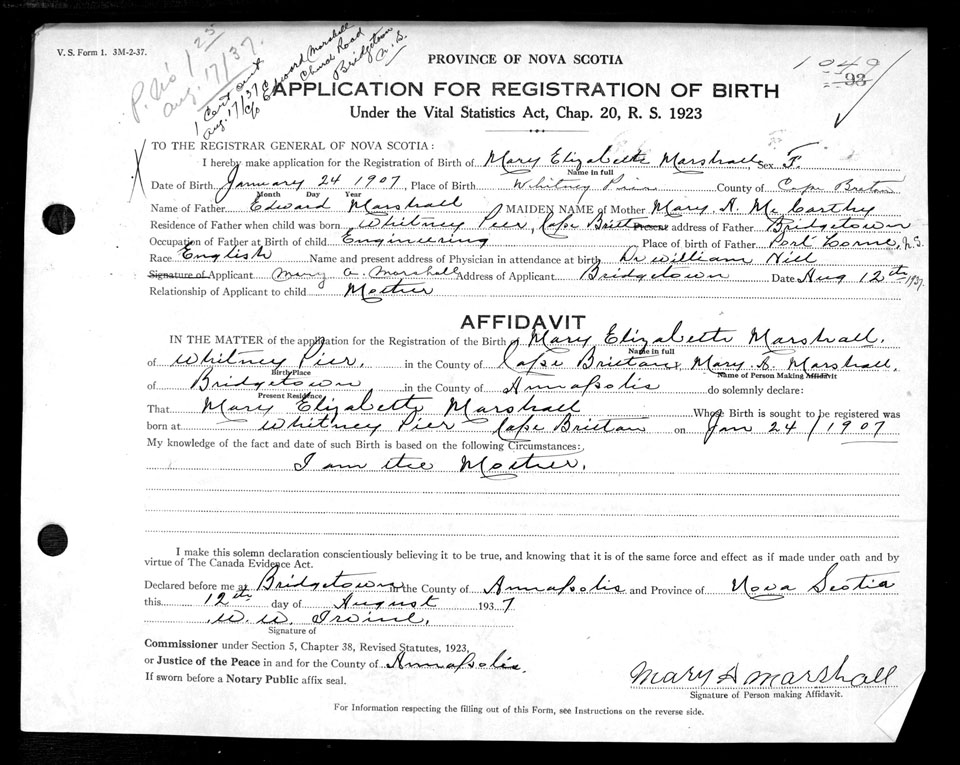 V. S. Form 1. 3M-2-37.
P. No 1 25
Aug. 17/37.
1 Cert sent
Aug. 17/37
c/o Edward Marshall
Church Road
Bridgetown
N. S.
1049
93
PROVINCE OF NOVA SCOTIA
APPLICATION FOR REGISTRATION OF BIRTH
Under the Vital Statistics Act, Chap. 20, R. S. 1923
TO THE REGISTRAR GENERAL OF NOVA SCOTIA:
I hereby make application for the Registration of Birth of Mary Elizabeth Marshall, Sex F.
Name in full
Date of Birth January 24 1907, Place of Birth Whitney Pier County of Cape Breton
Month Day Year
Name of Father Edward Marshall MAIDEN NAME of Mother Mary A. McCarthy
Residence of Father when child was born Whitney Pier, Cape Britton Present address of Father Bridgetown
Occupation of Father at Birth of child Engineering Place of Birth of Father Port Lorne, N.S.
Race English Name and present address of Physician in attendance at birth Dr William Nill
Signature of Applicant Mary A. Marshall Address of Applicant Bridgetown Date Aug 12th 1937.
Relationship of Applicant to child Mother
AFFIDAVIT
IN THE MATTER of the application for the Registration of the Birth of Mary Elizabeth Marshall.
Name in full
of Whitney Pier, in the County of Cape Brittan, Mary A. Marshall,
Birth Place Name of Person Making Affidavit
of Bridgetown in the County of Annapolis do solemnly declare:
Present Residence,
That Mary Elizabeth Marshall Whose Birth is sought to be registered was
born at Whitney Pier Cape Brittan on Jan 24 / 1907
My knowledge of the fact and date of such Birth is based on the following Circumstances:
I am the Mother.
I make this solemn declaration conscientiously believing it to be true, and knowing that it is of the same force and effect as if made under oath and by
virtue of The Canada Evidence Act.
Declared before me at Bridgetown in the County of Annapolis and Province of Nova Scotia
this 12th day of August 1937
W. W. Irvine.
Signature of
Commissioner under Section 5, Chapter 38, Revised Statutes, 1923,
or Justice of the Peace in and for the County of Annapolis.
If sworn before a Notary Public affix seal.
Mary A Marshall
Signature of Person making Affidavit.
For Information respecting the filling out of this Form, see Instructions on the reverse side.